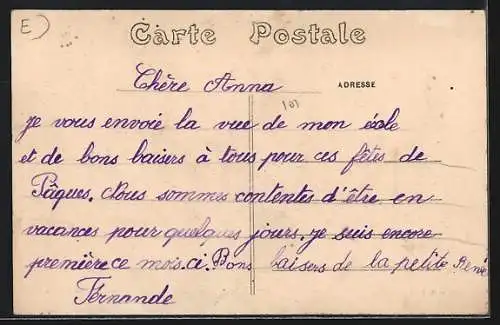 E
Carte Postale
Chère Anna
ADRESSE
101
je vous envoie la vue de mon école
et de bons baisers à tous pour ces fêtes de
Pâques. Nous sommes contentes d'être en
vacances pour quelques jours. je suis encore
première ce mois.ci. Bons baisers de la petite René
Fernande